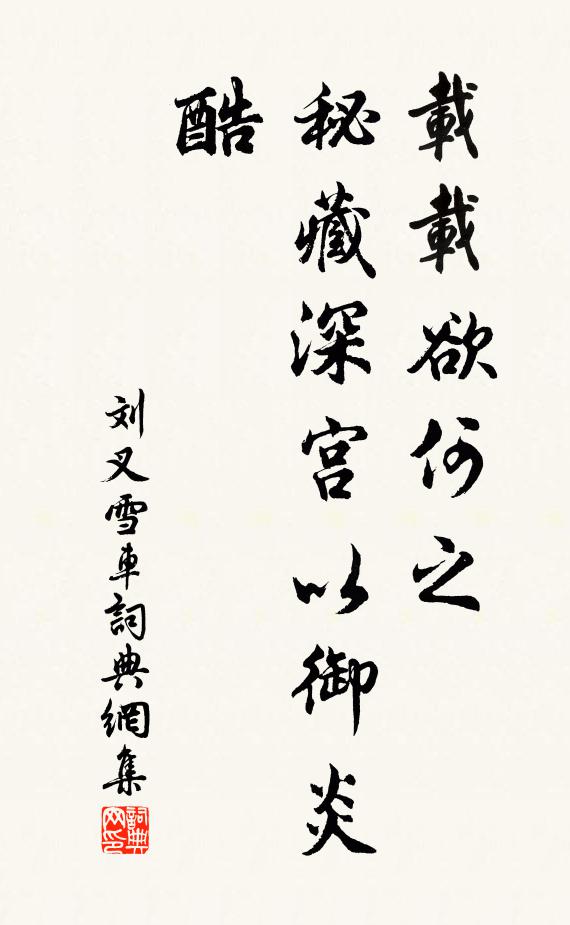 載載欲何之
秘藏深宫以御炎
酷
刘叉雪車詞典網集
詞典网印